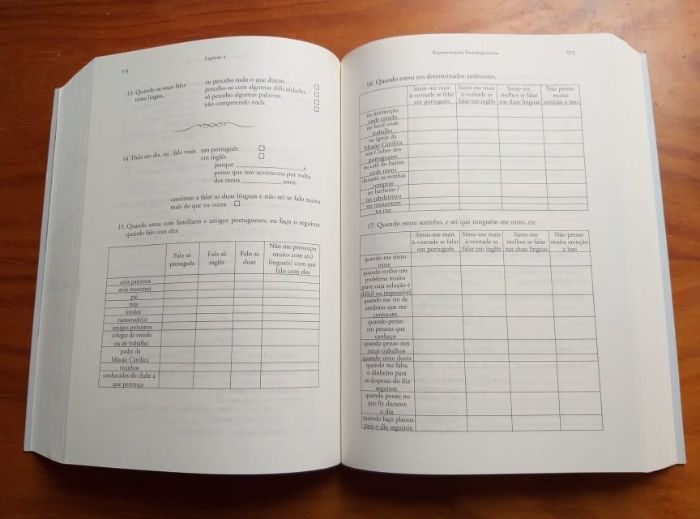 574
Capítulo 4
13. Quando os ouço falar
nessa língua,
eu percebo tudo o que dizem
percebo-os com algumas dificuldades
só percebo algumas palavras
não compreendo nada
14. Hoje em dia, eu falo mais
em português
em inglês
porque
penso que isso aconteceu por volta
dos meus anos.
continuo a falar as duas línguas e não sei se falo numa
mais do que na outra
15. Quando estou com familiares e amigos portugueses, eu faço o seguinte
quando falo com eles
Falo só
português
Falo só
inglês
Falo as
duas
Não me preocupo
muito com a(s)
língua(s) com que
falo com eles
avós paternos
avós maternos
pai
mãe
irmãos
namorado(a)
amigos próximos
colegas de estudo
ou de trabalho
padre da
Missão Católica
vizinhos
conhecidos do clube a
que pertenço
575
16. Quando estou em determinados ambientes,
Sinto-me mais
à-vontade se falar
em português
Sinto-me mais
à-vontade se
falar em inglês
Sinto-me
melhor se falar
nas duas línguas
Não presto
muita
atenção a isto
na instituição
onde estudo
no local onde
trabalho
na igreja da
Missão Católica
nos Clubes dos
portugueses
no café do bairro
onde moro
durante as minhas
compras
no barbeiro /
na cabeleireira
no restaurante
na rua
17. Quando estou sozinho, e sei que ninguém me ouve, eu
Sinto-me mais
à-vontade se falar
em português
Sinto-me mais
à-vontade se
falar em inglês
Sinto-me
melhor se falar
nas duas línguas
Não presto
muita atenção
a isto
quando me sinto
triste
quando tenho um
problema muito
grave cuja solução é
difícil ou impossível
quando me rio de
anedotas que me
contaram
quando penso
em pessoas que
conheço
quando penso nos
meus trabalhos
quando sinto dores
quando me falta
o dinheiro para
as despesas do dia
seguinte
quando penso no
que fiz durante
o dia
quando faço planos
para o dia seguinte